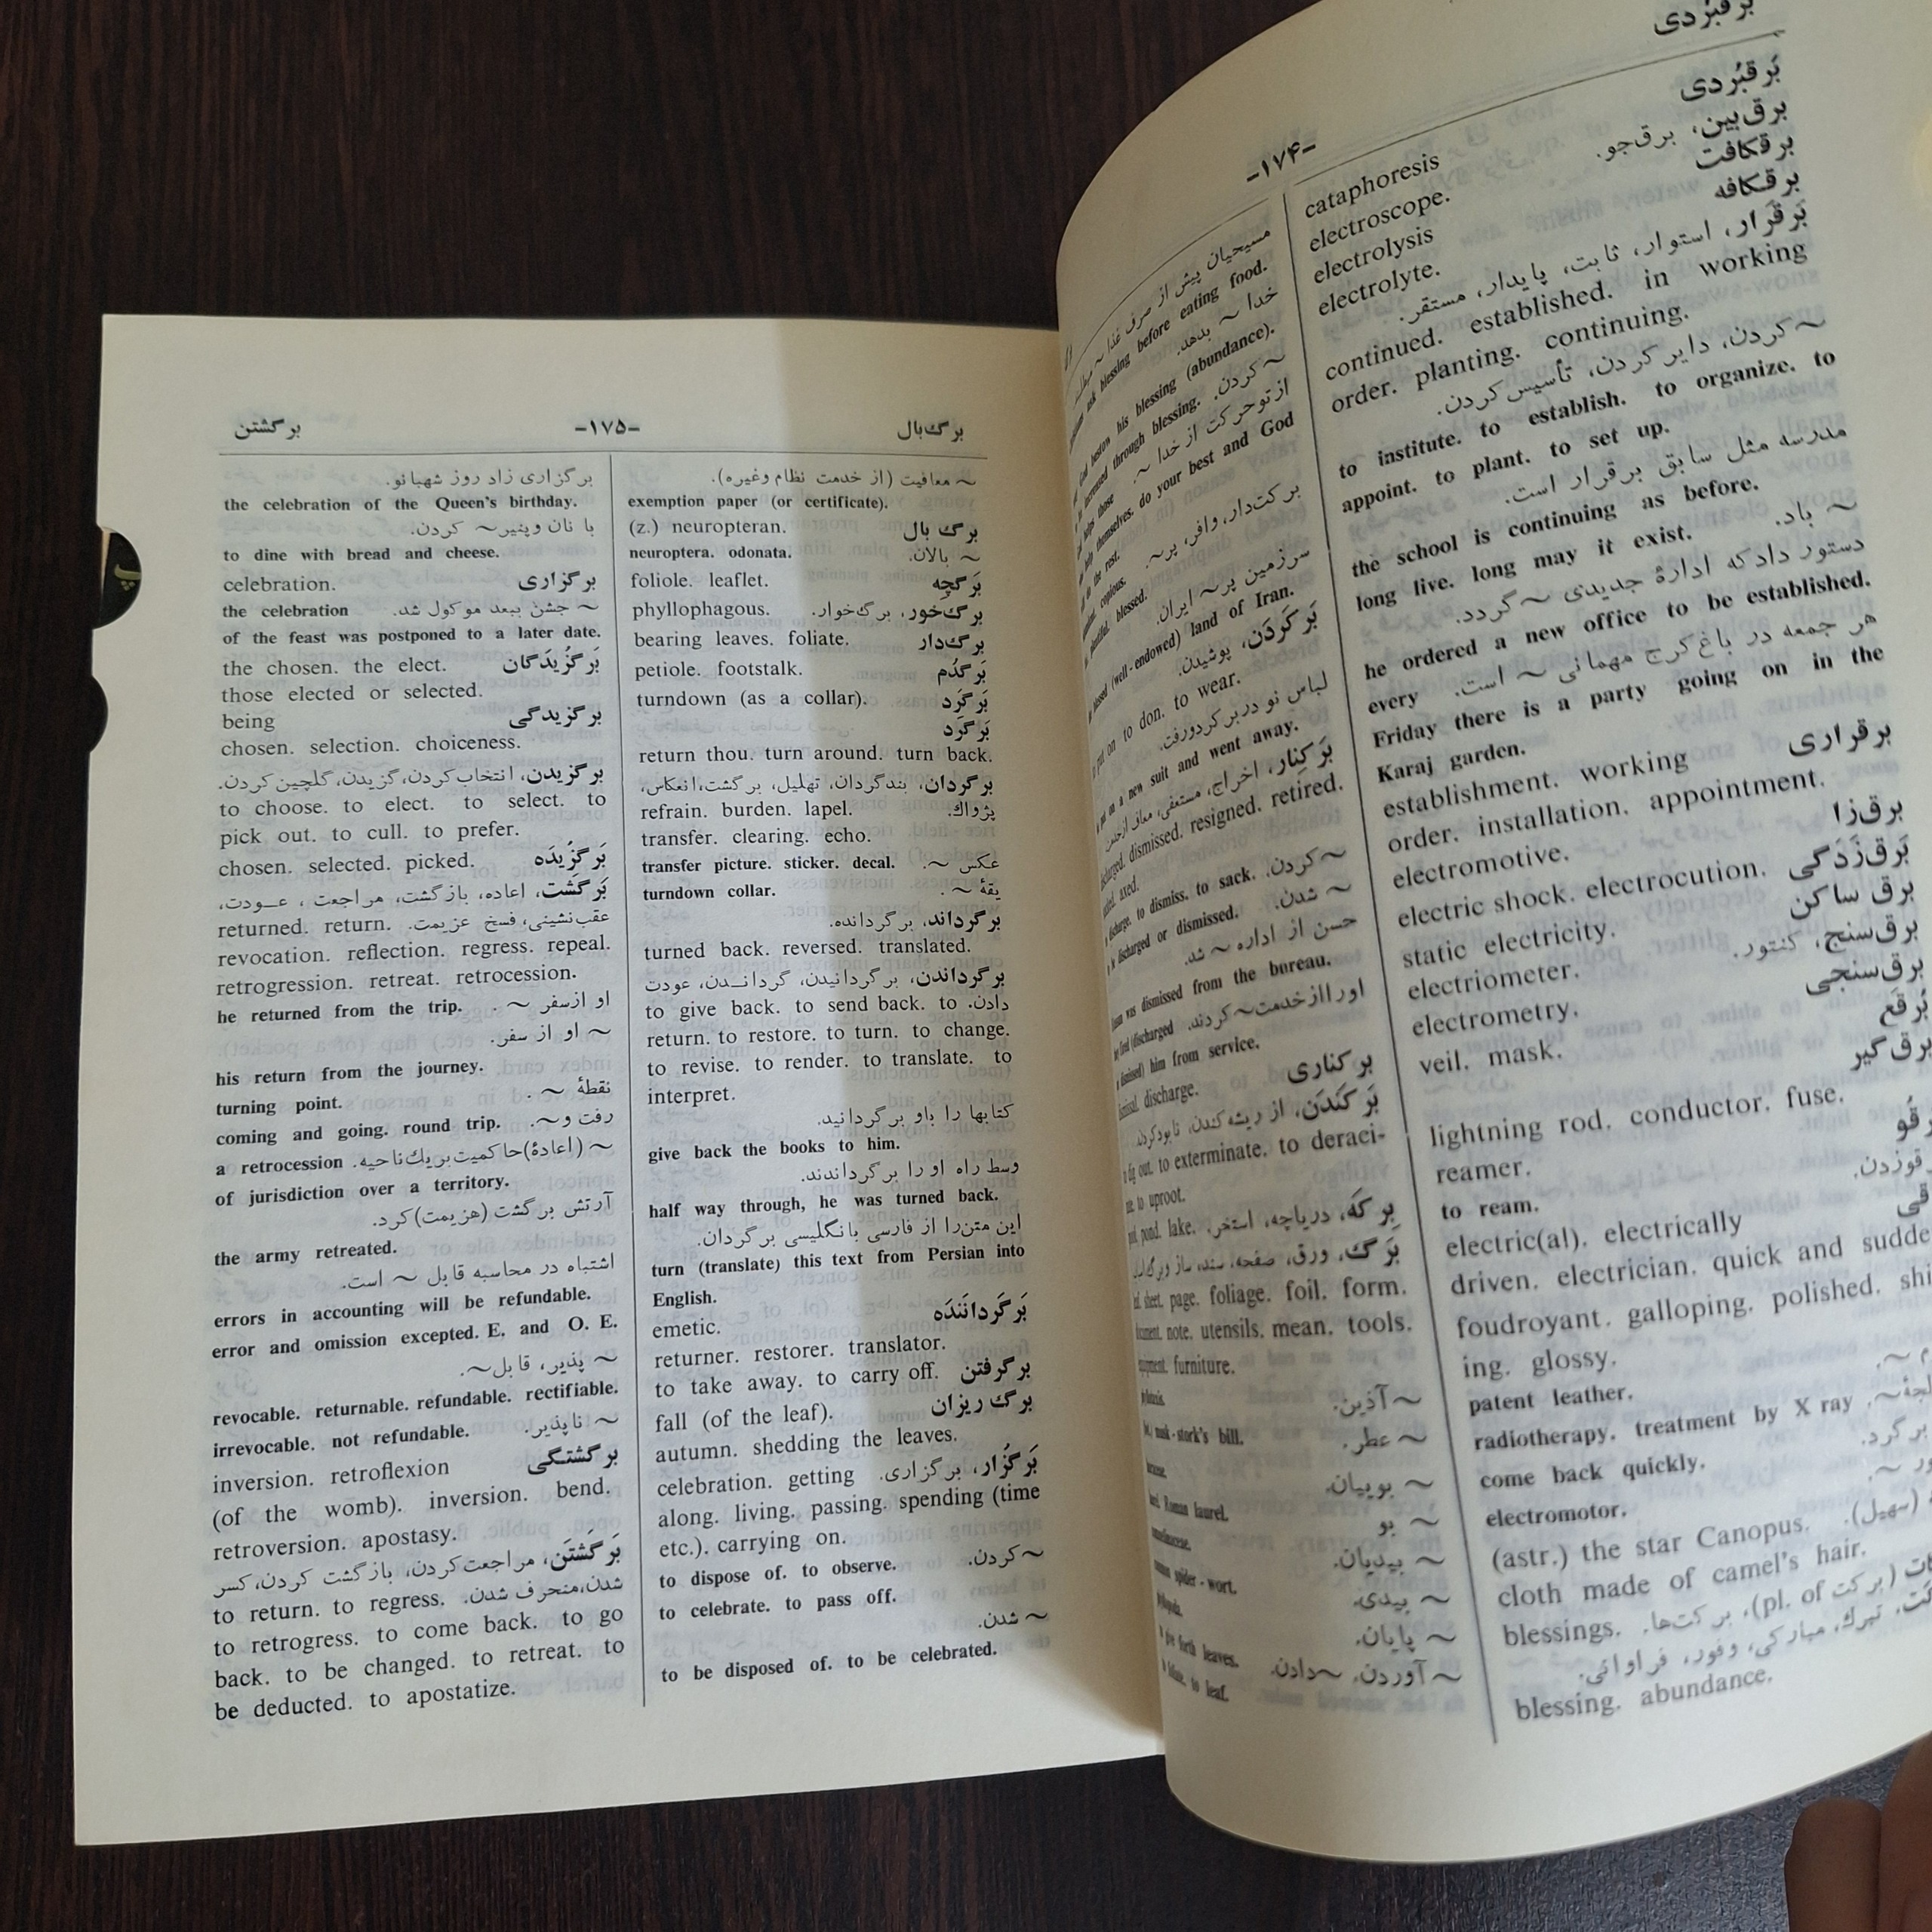 برقبُردی
-۱۷۴-
بَرقبُردی
cataphoresis
برق‌بین، برق‌جو.
electroscope.
برقکافت
electrolysis
برقکافه
electrolyte.
بَرقَرار، استوار، ثابت، پایدار، مستقر.
continued. established. in working
order. planting. continuing.
~ کردن، دایر کردن، تأسیس کردن.
to institute. to establish. to organize. to
appoint. to plant. to set up.
مدرسه مثل سابق برقرار است.
the school is continuing as before.
~ باد.
long live. long may it exist.
دستور داد که ادارهٔ جدیدی ~ گردد.
he ordered a new office to be established.
هر جمعه در باغ کرج مهمانی ~ است.
every
Friday there is a party going on in the
Karaj garden.
برقراری
establishment. working
order. installation. appointment.
برق‌زا
electromotive.
بَرق‌زَدَگی
electric shock. electrocution.
برق ساکن
static electricity.
برق‌سنج، کنتور.
electriometer.
برق‌سنجی
electrometry.
بُرقَع
veil. mask.
برق‌گیر
lightning rod. conductor. fuse.
reamer.
to ream.
electric(al). electrically
driven. electrician. quick and
foudroyant. galloping. polished.
ing. glossy.
patent leather.
radiotherapy. treatment by X ray
come back quickly.
electromotor.
(سهیل).
(astr.) the star Canopus.
cloth made of camel's hair.
(pl. of برکت)، برکت‌ها.
blessings.
تبرك، مبارکی، وفور، فراوانی.
blessing. abundance.
مسیحیان پیش از صرف غذا ~
blessing before eating food.
خدا ~ بدهد.
bestow his blessing (abundance).
~ کردن.
increased through blessing.
از تو حرکت از خدا ~
those
help themselves. do your best and God
the rest.
برکت‌دار، وافر، پر ~.
copious.
blessed.
سرزمین پر ~ ایران.
blessed (well-endowed) land of Iran.
بَر کَردَن، پوشیدن.
put on to don. to wear.
لباس نو در بر کرد و رفت.
put on a new suit and went away.
بَر کِنار، اخراج، مستعفی، معاف از خدمت
dismissed. resigned. retired.
~ کردن.
discharge. to dismiss. to sack.
~ شدن.
be discharged or dismissed.
حسن از اداره ~ شد.
was dismissed from the bureau.
او را از خدمت ~ کردند.
(discharged
dismissed) him from service.
بر کناری
discharge.
بَر کَندَن، از ریشه کندن، نابود کردن.
dig out. to exterminate. to deraci-
to uproot.
بِر کَه، دریاچه، استخر.
pond. lake.
بَرگ، ورق، صفحه، سند، ساز و برگ
sheet. page. foliage. foil. form.
note. utensils. mean. tools.
furniture.
~ آذین.
~ عطر.
musk-stork's bill.
~ بوییان.
~ بو
Roman laurel.
~ بیدیان.
~ بیدی.
spider-wort.
~ پایان.
~ آوردن. ~ دادن.
give forth leaves.
to leaf.
برگ‌بال
-۱۷۵-
برگشتن
~ معافیت (از خدمت نظام وغیره).
exemption paper (or certificate).
برگ بال
(z.) neuropteran.
~ بالان.
neuroptera. odonata.
بَرگچه
foliole. leaflet.
برگ‌خور، برگ‌خوار.
phyllophagous.
برگ‌دار
bearing leaves. foliate.
بَرگدُم
petiole. footstalk.
بَرگَرد
turndown (as a collar).
بَرگَرد
return thou. turn around. turn back.
برگردان، بندگردان، تهلیل، برگشت، انعکاس،
پژواك.
refrain. burden. lapel.
transfer. clearing. echo.
عکس ~.
transfer picture. sticker. decal.
یقهٔ ~.
turndown collar.
برگرداند، برگردانده.
turned back. reversed. translated.
برگرداندن، برگردانیدن، گردانــدن، عودت
دادن.
to give back. to send back. to
return. to restore. to turn. to change.
to revise. to render. to translate. to
interpret.
کتابها را باو برگردانید.
give back the books to him.
وسط راه او را برگرداندند.
half way through, he was turned back.
این متن‌را از فارسی بانگلیسی برگردان.
turn (translate) this text from Persian into
English.
بَرگَردانَندَه
emetic.
returner. restorer. translator.
برگرفتن
to take away. to carry off.
برگ ریزان
fall (of the leaf).
autumn. shedding the leaves.
بَرگزُار، برگزاری.
celebration. getting
along. living. passing. spending (time
etc.). carrying on.
~ کردن.
to dispose of. to observe.
to celebrate. to pass off.
~ شدن.
to be disposed of. to be celebrated.
برگزاری زاد روز شهبانو.
the celebration of the Queen's birthday.
با نان و پنیر ~ کردن.
to dine with bread and cheese.
برگزاری
celebration.
~ جشن ببعد موکول شد.
the celebration
of the feast was postponed to a later date.
بَرگُزیدَگان
the chosen. the elect.
those elected or selected.
برگزیدگی
being
chosen. selection. choiceness.
برگزیدن، انتخاب کردن، گزیدن، گلچین کردن.
to choose. to elect. to select. to
pick out. to cull. to prefer.
بَرگزُیدَه
chosen. selected. picked.
بَرگَشت، اعاده، بازگشت، مراجعت ، عــودت،
عقب‌نشینی، فسخ عزیمت.
returned. return.
revocation. reflection. regress. repeal.
retrogression. retreat. retrocession.
او ازسفر ~ .
he returned from the trip.
~ او از سفر.
his return from the journey.
نقطهٔ ~ .
turning point.
رفت و ~.
coming and going. round trip.
~ (اعادهٔ) حاکمیت بر یك ناحیه.
a retrocession
of jurisdiction over a territory.
آرتش برگشت (هزیمت) کرد.
the army retreated.
اشتباه در محاسبه قابل ~ است.
errors in accounting will be refundable.
error and omission excepted. E. and O. E.
~ پذیر، قابل ~.
revocable. returnable. refundable. rectifiable.
~ ناپذیر.
irrevocable. not refundable.
برگشتـگی
inversion. retroflexion
(of the womb). inversion. bend.
retroversion. apostasy.
بَرگَشتَن، مراجعت کردن، بازگشت کردن، کسر
شدن، منحرف شدن.
to return. to regress.
to retrogress. to come back. to go
back. to be changed. to retreat. to
be deducted. to apostatize.
پ